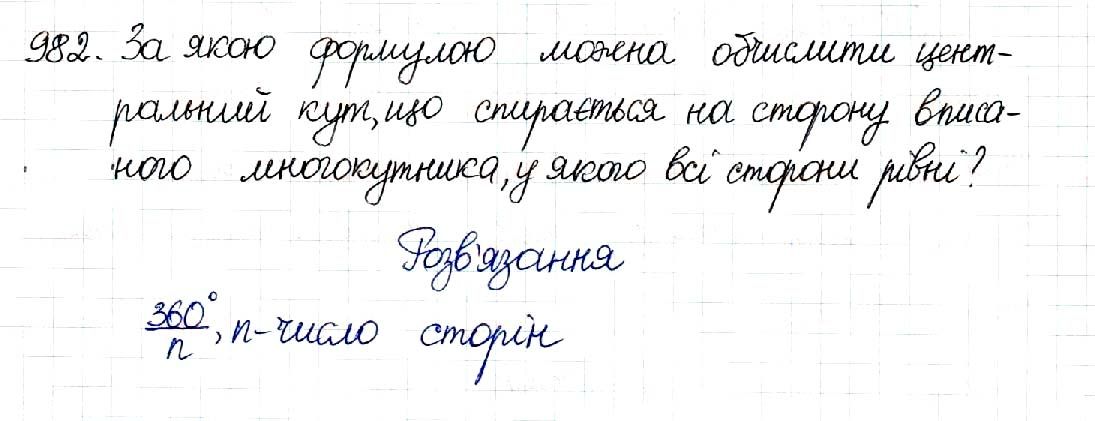 982. За якою формулою можна обчислити цент-
ральний кут, що спирається на сторону вписа-
ного многокутника, у якого всі сторони рівні?
Розв'язання
360°/n, n - число сторін